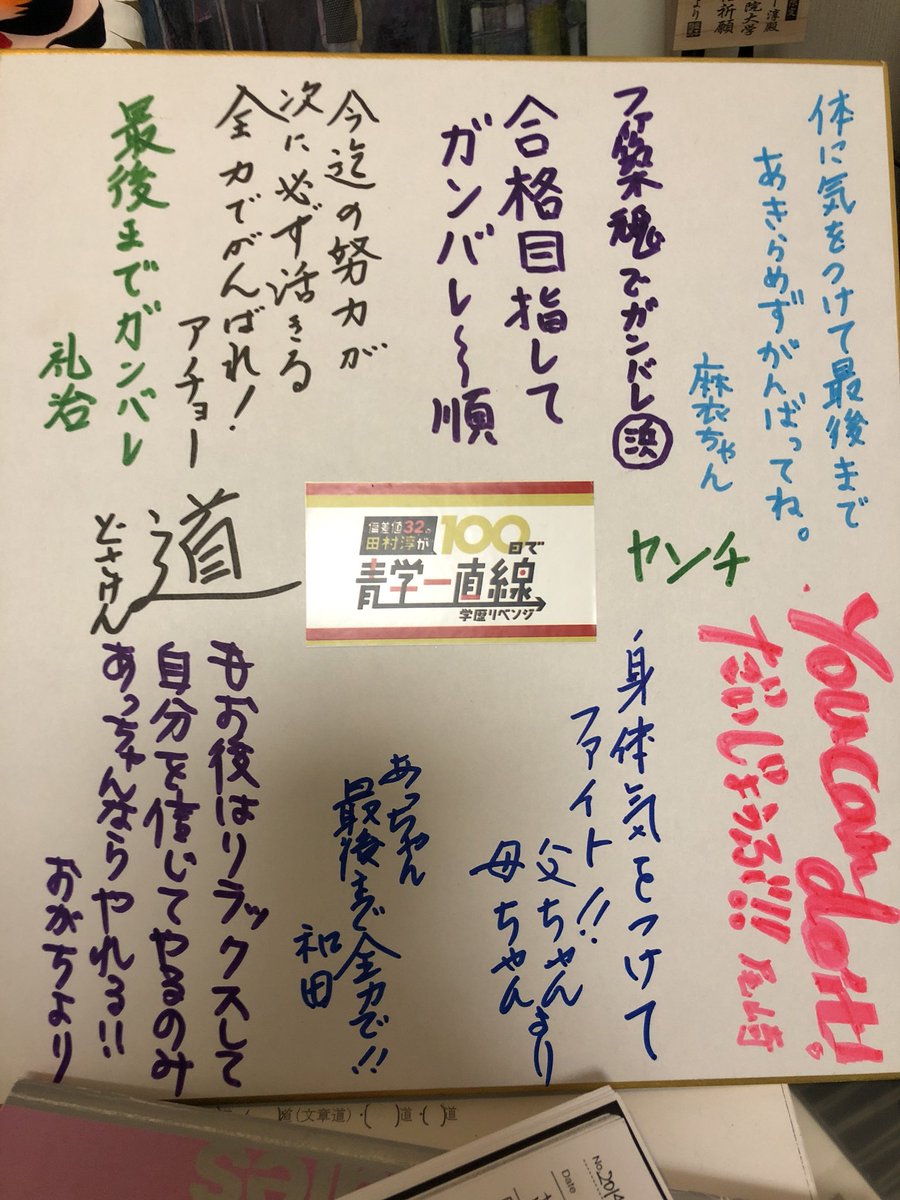 淳殿
院大学
祈願
より
体に気をつけて最後まで
あきらめずがんばってね。
麻衣ちゃん
魂でガンバレ 浜
合格目指して
ガンバレ〜順
今迄の努力が
次に必ず活きる
全力でがんばれ!
アチョー
最後までガンバレ
礼治
ヤンチ
偏差値32の
田村淳が100日で
青学一直線
学歴リベンジ
道
どさけん
You can do it!
だいじょうぶ!!!
身体気をつけて
ファイト!!
父ちゃんより
母ちゃん
あっちゃん
最後まで全力で!!
和田
もお後はリラックスして
自分を信じてやるのみ
あっちゃんならやれる!!
おがちより
道(文章道)・( )道・( )道
No.
Date